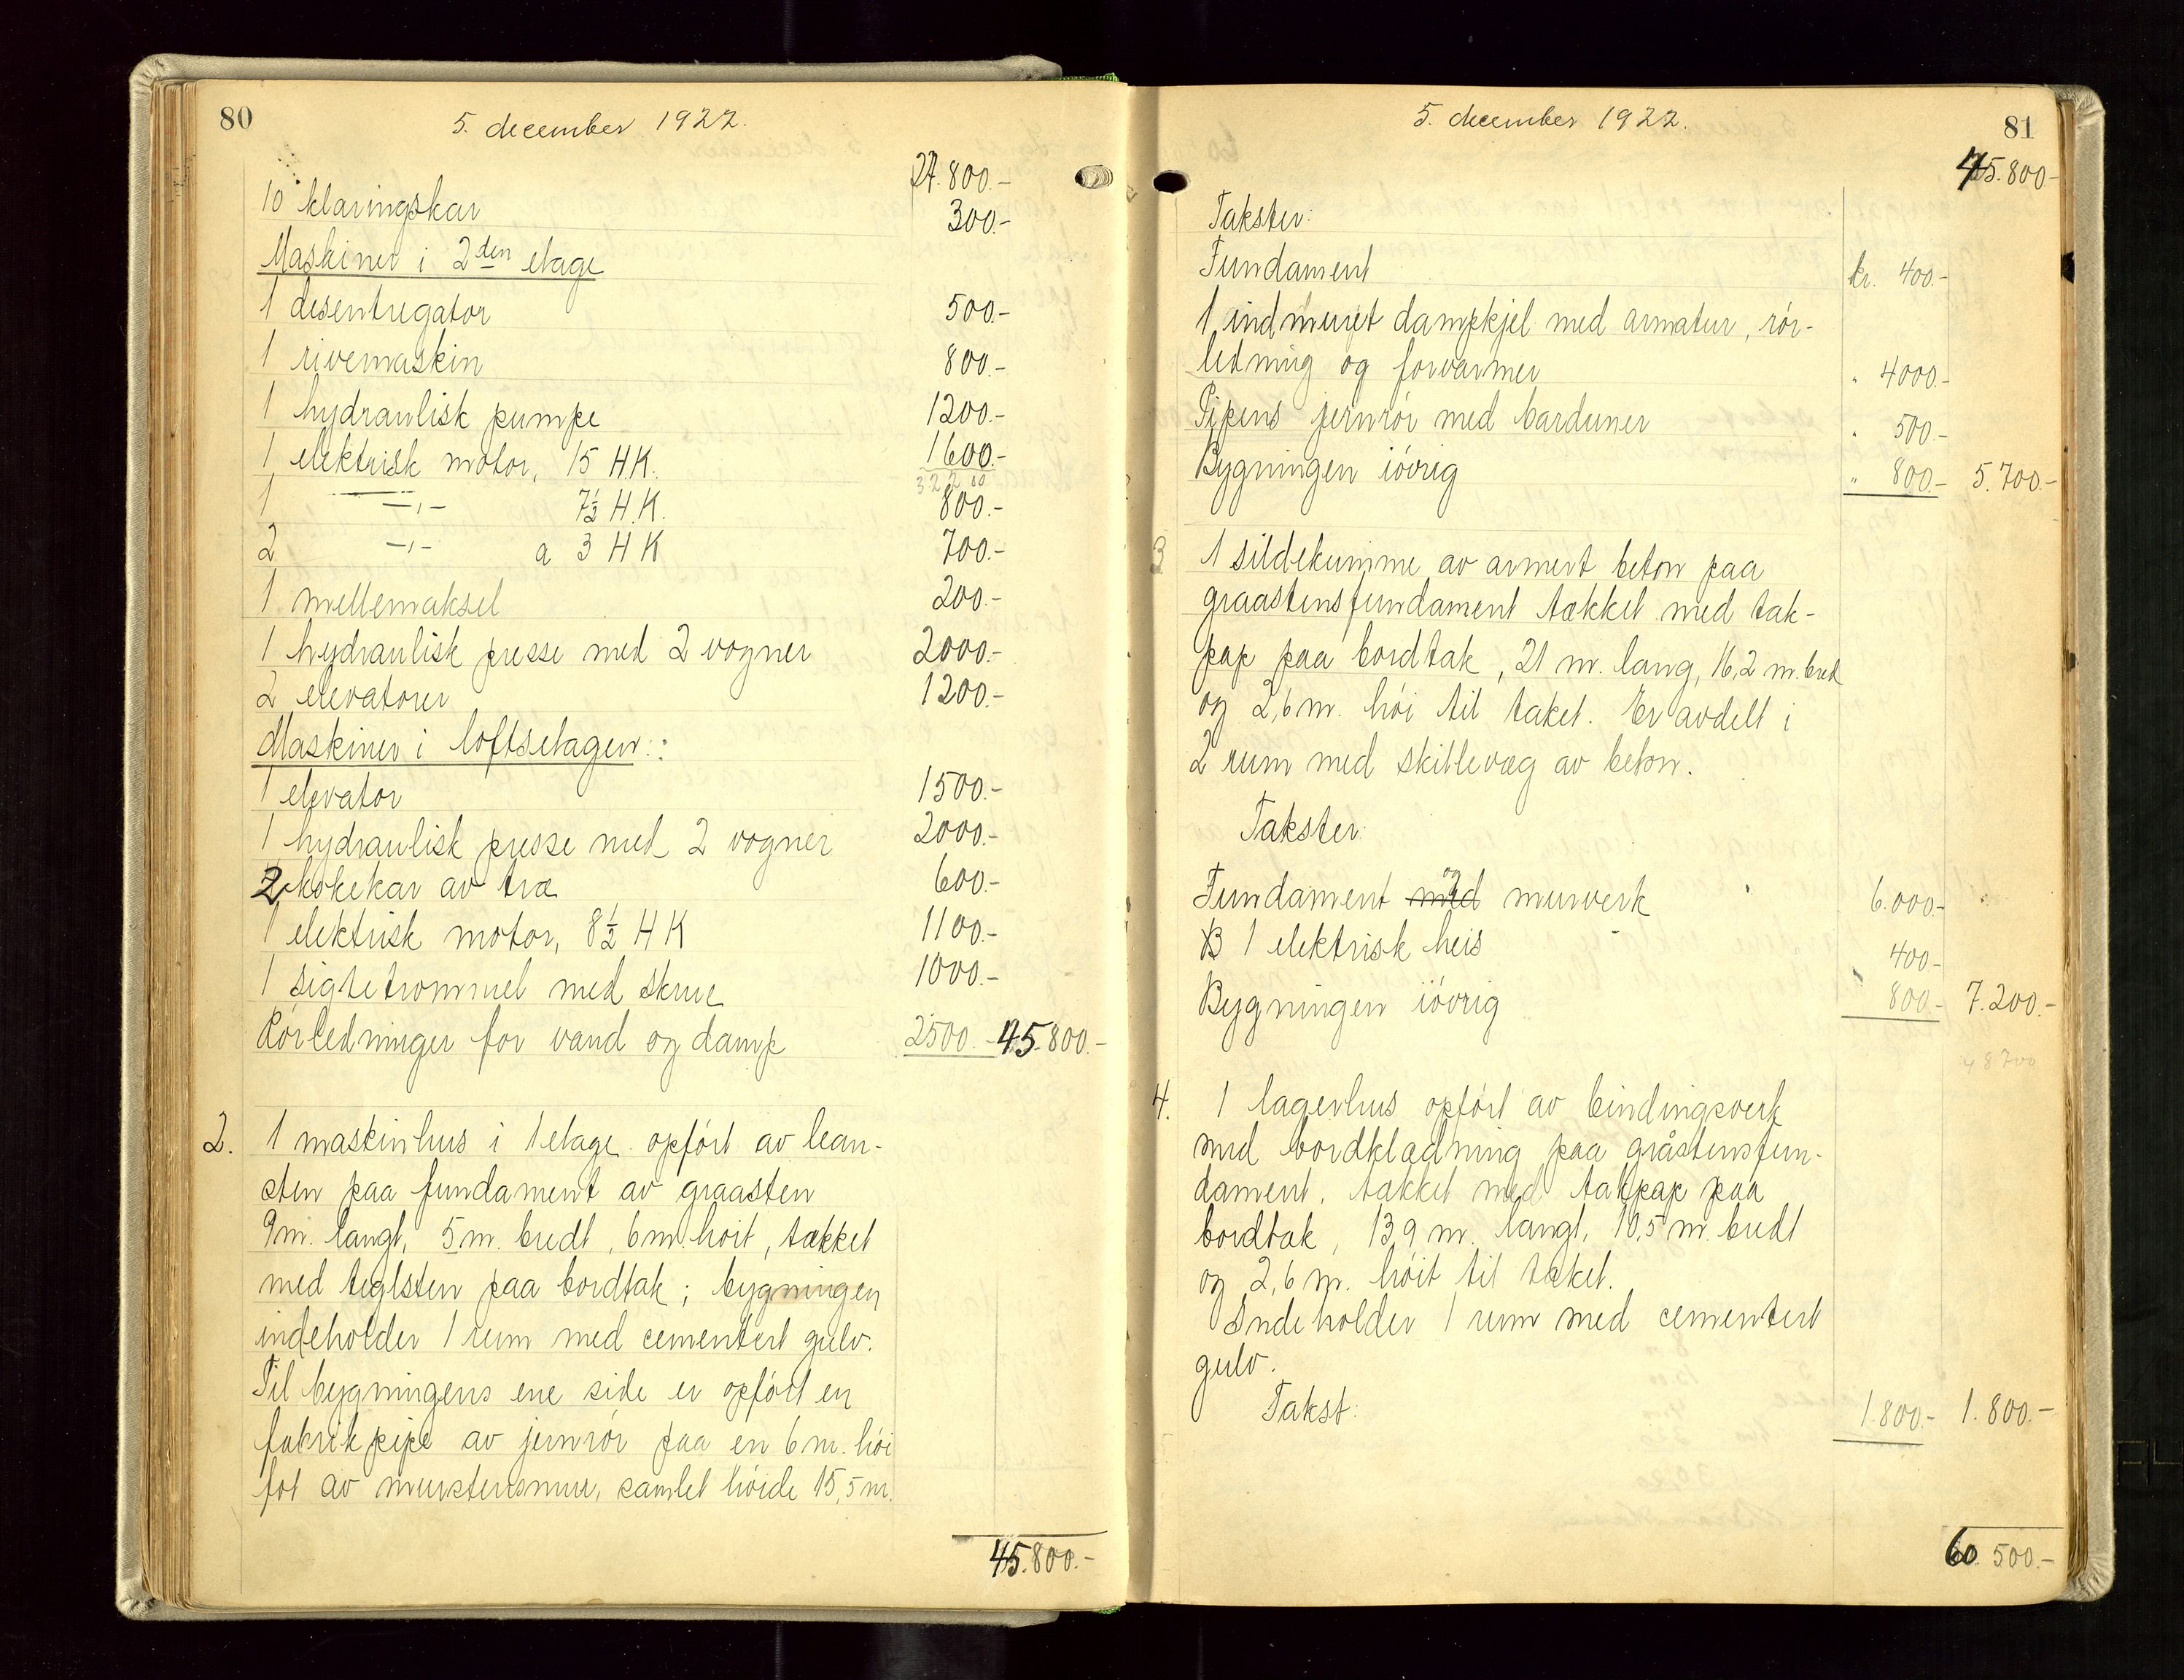 80
5. december 1922.
27.800.-
10 klaringskar 300.-
Maskiner i 2den etage
1 desentregator 500.-
1 rivemaskin 800.-
1 hydraulisk pumpe 1200.-
1 elektrisk motor, 15 H.K. 1600.-
1 -,,- 7½ H.K. 800.-
2 -,,- a 3 H K 700.-
1 mellemaksel 200.-
1 hydraulisk presse med 2 vogner 2000.-
2 elevatorer 1200.-
Maskiner i loftsetagen::
1 elevator 1500.-
1 hydraulisk presse med 2 vogner 2000.-
2 kokekar av træ 600.-
1 elektrisk motor, 8½ H K 1100.-
1 sigtetrommel med skrue 1000.-
Rörledninger for vand og damp 2500.- 45.800.-
2. 1 maskinhus i 1 etage opfört av lean-
sten paa fundament av graasten
9 m. langt, 5 m. bredt, 6 m. höit, tækket
med teglsten paa bordtak; bygningen
indeholder 1 rum med cementert gulv.
Til bygningens ene side er opfört en
fabrikpipe av jernrör paa en 6 m. höi
fot av murstensmur, samlet höide 15,5 m.
45.800.-
5. december 1922.
81
45.800.-
Takster:
Fundament kr. 400.-
1 indmuret dampkjel med armatur, rör-
ledning og forvarmer " 4000.-
Pipens jernrör med barduner " 500.-
Bygningen iövrig " 800.- 5.700.-
3 1 sildekumme av armert beton paa
graastensfundament tækket med tak-
pap paa bordtak, 21 m. lang, 16,2 m. bred
og 2,6 m. höi til taket. Er avdelt i
2 rum med skillevæg av beton.
Takster:
Fundament med og murverk 6.000.-
B 1 elektrisk heis 400.-
Bygningen iövrig 800.- 7.200.-
48700
4. 1 lagerhus opfört av bindingsverk
med bordklædning paa gråstensfun-
dament, tækket med takpap paa
bordtak, 13,9 m. langt, 10,5 m. bredt
og 2,6 m. höit til taket.
Indeholder 1 rum med cementert
gulv.
Takst: 1.800.- 1.800.-
60.500.-